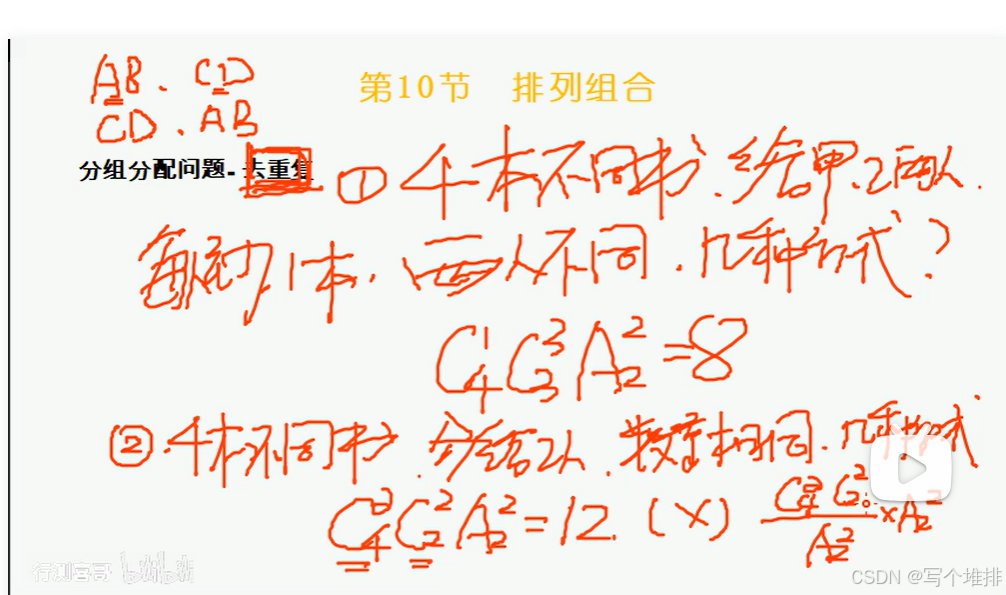 AB、CD
第10节 排列组合
CD、AB
分组分配问题-去重复 ① 4本不同书、给甲、乙两人.
每人至少1本，两人不同.几种方式？
C₄¹C₃³A₂²=8
② 4本不同书、分给2人、数量相同.几种方式
C₄²C₂²A₂²=12.(×) C₄²C₂²/A₂²×A₂²
行测喜哥 bilibili
CSDN @写个堆排